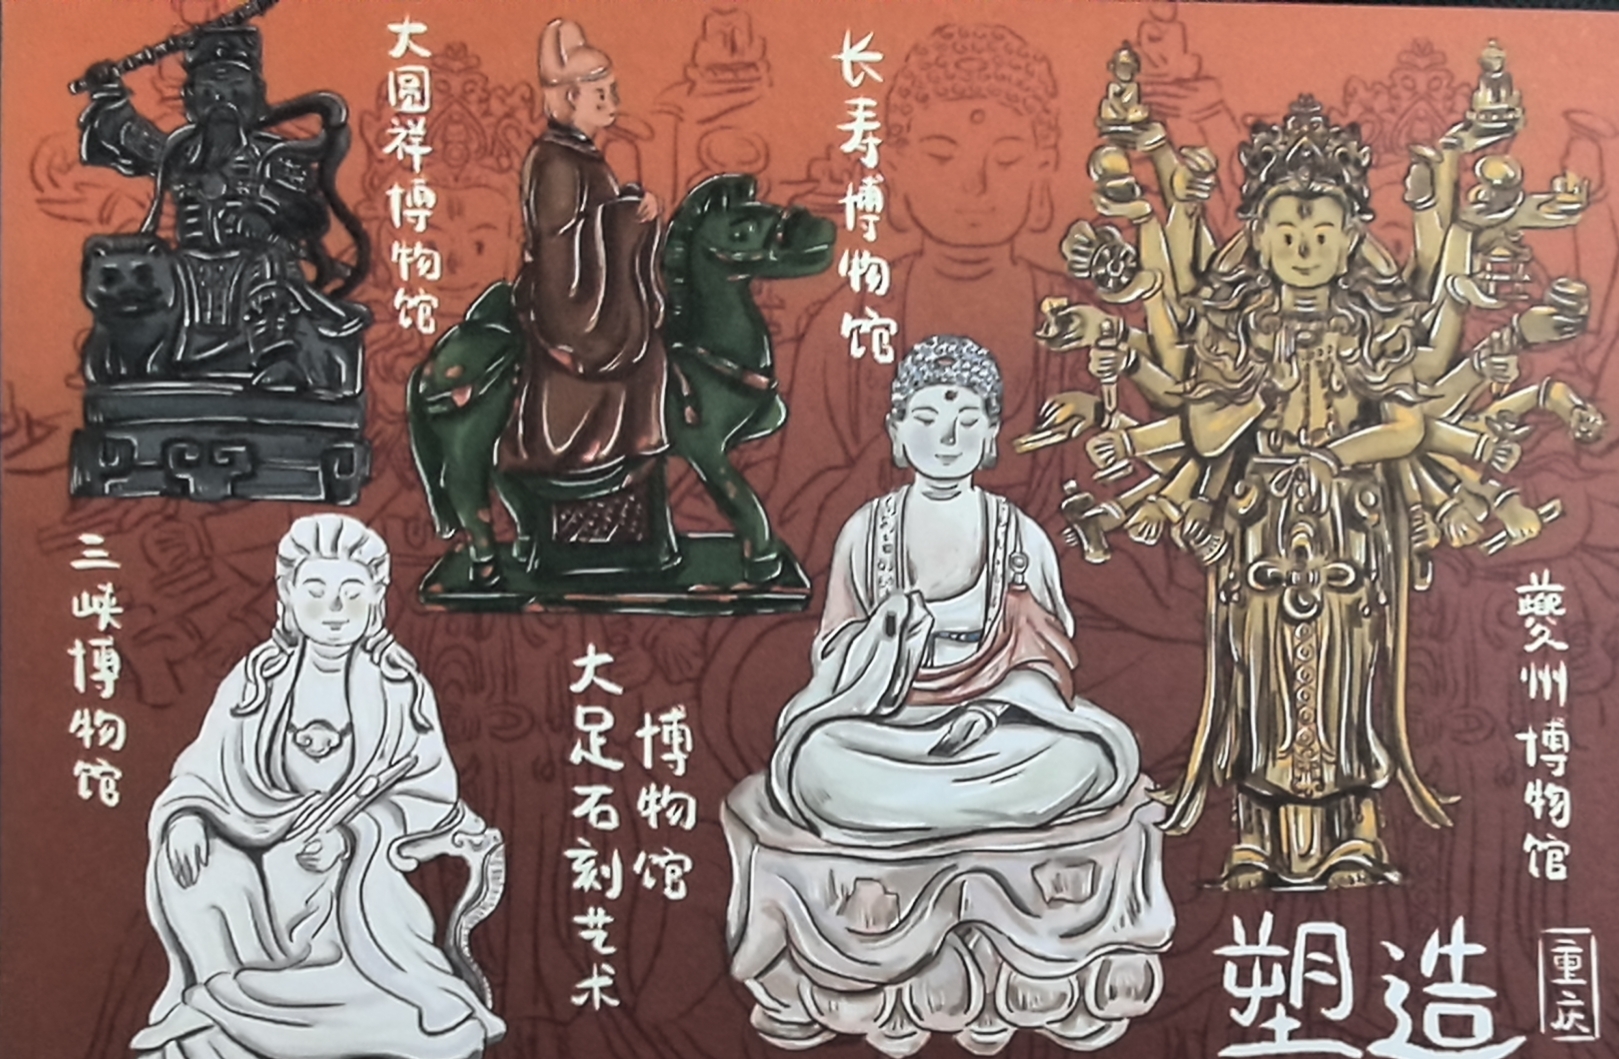 大圆祥博物馆
长寿博物馆
三峡博物馆
大足石刻艺术
博物馆
夔州博物馆
塑造
重庆